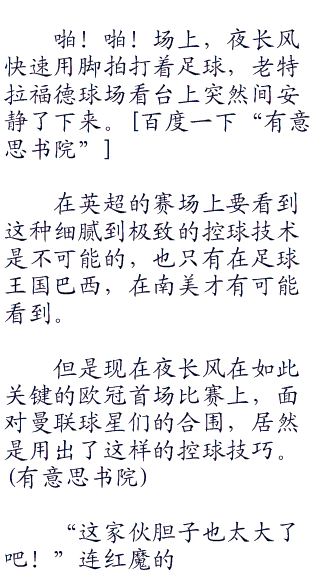 啪！啪！场上，夜长风
快速用脚拍打着足球，老特
拉福德球场看台上突然间安
静了下来。[百度一下“有意
思书院”]
在英超的赛场上要看到
这种细腻到极致的控球技术
是不可能的，也只有在足球
王国巴西，在南美才有可能
看到。
但是现在夜长风在如此
关键的欧冠首场比赛上，面
对曼联球星们的合围，居然
是用出了这样的控球技巧。
(有意思书院)
“这家伙胆子也太大了
吧！”连红魔的